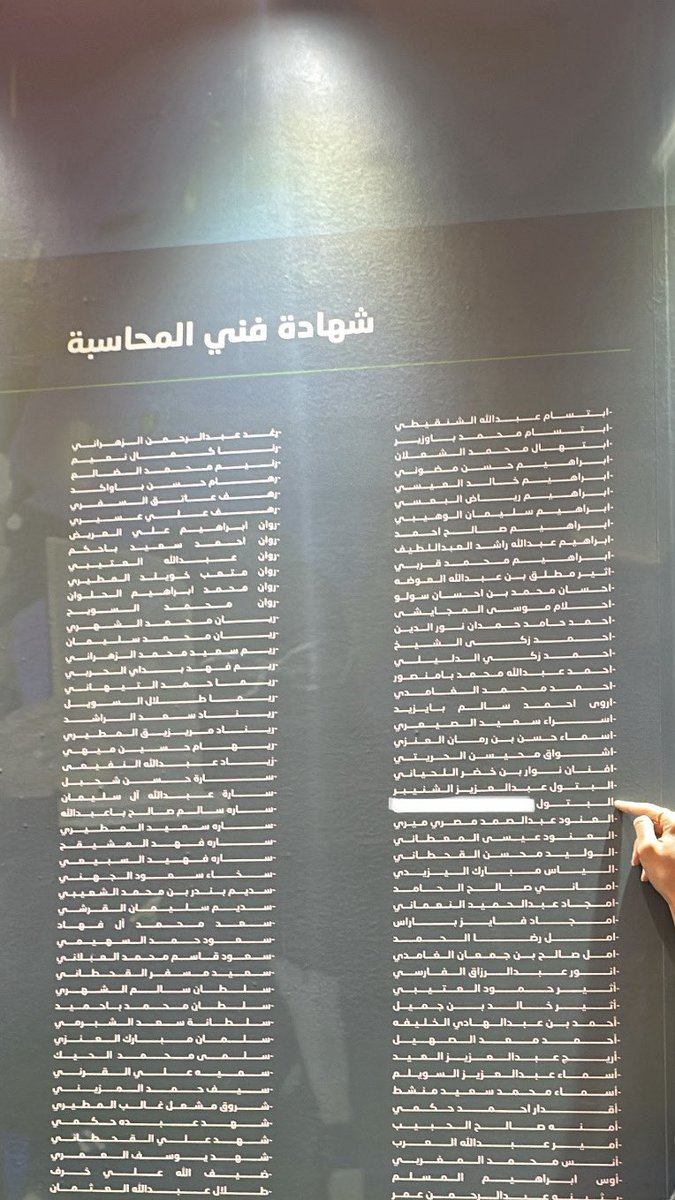 شهادة فني المحاسبة
-ابتسام عبدالله الشنقيطي
-ابتسام محمد باوزير
-ابتهال محمد الشعلان
-ابراهيم حسن مضوني
-ابراهيم خالد العيسي
-ابراهيم رياض اليمسي
-ابراهيم سليمان الوهيبي
-ابراهيم صالح احمد
-ابراهيم عبدالله راشد العبداللطيف
-ابراهيم محمد قربي
-اثير مطلق بن عبدالله العوضه
-احسان محمد بن احسان سولو
-احلام موسى المجايشي
-احمد حامد حمدان نور الدين
-احمد زكي الشيخ
-احمد زكي الدليلي
-احمد عبدالله محمد بامنصور
-احمد محمد الغامدي
-اروى احمد سالم بايزيد
-اسراء سعيد الصيعري
-اسماء حسن بن رمان العنزي
-اشواق محيسن الحريتي
-افنان نوار بن خضر اللحياني
-البتول عبدالعزيز الشنيبر
-البتول
-العنود عبدالصمد مصري ميري
-العنود عيسى المعطاني
-الوليد محسن القحطاني
-الياس مبارك اليزيدي
-اماني صالح الحامد
-امجاد عبدالحميد النعماني
-امجاد فايز باراس
-امل رضا الحمد
-امل صالح بن جمعان الغامدي
-انور عبدالرزاق الفارسي
-أثير حمود العتيبي
-أثير خالد بن جميل
-أحمد بن عبدالهادي الخليفه
-أحمد معد الصهيل
-أريج عبدالعزيز العيد
-أسماء عبدالعزيز السويلم
-أسماء محمد سعيد منشط
-أقدار احمد حكمي
-أمنه صالح الحبيب
-أمير عبدالله العرب
-أنس محمد المغربي
-أوس ابراهيم المسلم
عبدالرحمن عمر
-رغد عبدالرحمن الزهراني
-رنا كمال نعيم
-رنيم محمد الضالم
-رهام حسن باواكد
-رهف عاتق السفري
-رهف علي عسيري
-روان أبراهيم علي العريض
-روان احمد سعيد باحكم
-روان عبدالله العتيبي
-روان متعب خويلد المطيري
-روان محمد ابراهيم الحلوان
-روان محمد السويح
-ريان محمد الشهري
-ريان محمد سليمان
-ريم سعيد محمد الزهراني
-ريم فهد بداي الحربي
-ريما حمد التيهاني
-ريما طلال السويل
-ريناد سعد الراشد
-ريناد مريزيق المطيري
-ريهام حسين مبهي
-زياد عبدالله النفيعي
-سارة حسن شحبل
-سارة عبدالله آل سليمان
-ساره سالم صالح باعبدالله
-ساره سعيد المطيري
-ساره فهد المشيقح
-ساره فهيد السبيعي
-سخاء سعود الجهني
-سديم بندر بن محمد الشعيبي
-سديم سليمان القرشي
-سعد محمد آل فهاد
-سعود حمد السهيمي
-سعود قاسم محمد العبلاني
-سعيد مسفر القحطاني
-سلطان سالم الشهري
-سلطان محمد باحميد
-سلطانة سعد الشبرمي
-سلمان مبارك العنزي
-سلمى محمد الحيك
-سميه علي القرني
-سيف حمد المزيني
-شروق مشعل غالب المطيري
-شهد عبده حكمي
-شهد علي القحطاني
-شهد يوسف العمري
-ضيف الله علي خرف
-طلال عبدالله العثمان